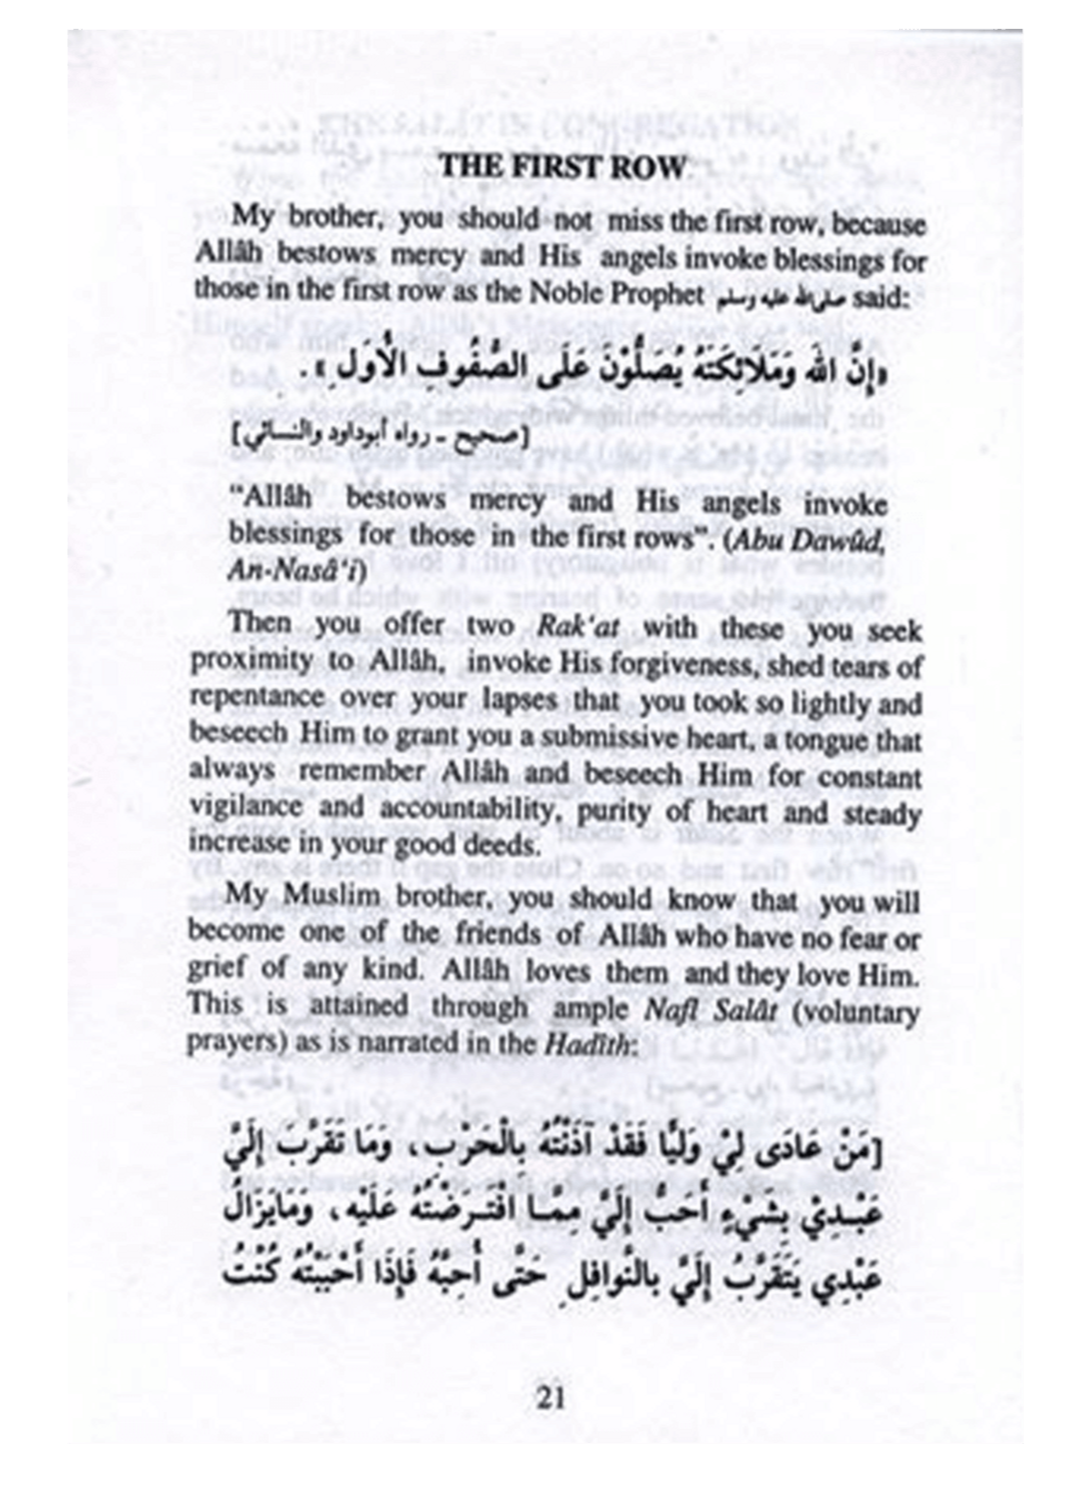 THE FIRST ROW
My brother, you should not miss the first row, because
Allâh bestows mercy and His angels invoke blessings for
those in the first row as the Noble Prophet صلى الله عليه وسلم said:
«إِنَّ الله وَمَلَائِكَتَهُ يُصَلُّوْنَ عَلَى الصُّفُوفِ الْأُوَل».
[صحيح - رواه أبوداود والنسائي]
“Allâh bestows mercy and His angels invoke
blessings for those in the first rows”. (Abu Dawûd,
An-Nasâ‘i)
Then you offer two Rak‘at with these you seek
proximity to Allâh, invoke His forgiveness, shed tears of
repentance over your lapses that you took so lightly and
beseech Him to grant you a submissive heart, a tongue that
always remember Allâh and beseech Him for constant
vigilance and accountability, purity of heart and steady
increase in your good deeds.
My Muslim brother, you should know that you will
become one of the friends of Allâh who have no fear or
grief of any kind. Allâh loves them and they love Him.
This is attained through ample Nafl Salât (voluntary
prayers) as is narrated in the Hadîth:
[مَنْ عَادَى لِيْ وَلِيًّا فَقَدْ آذَنْتُهُ بِالْحَرْبِ، وَمَا تَقَرَّبَ إِلَيَّ
عَبْدِيْ بِشَيْءٍ أَحَبَّ إِلَيَّ مِمَّا افْتَرَضْتُهُ عَلَيْهِ، وَمَايَزَالُ
عَبْدِي يَتَقَرَّبُ إِلَيَّ بالنَّوافِلِ حَتَّى أُحِبَّهُ فَإِذَا أَحْبَبْتُهُ كُنْتُ
21